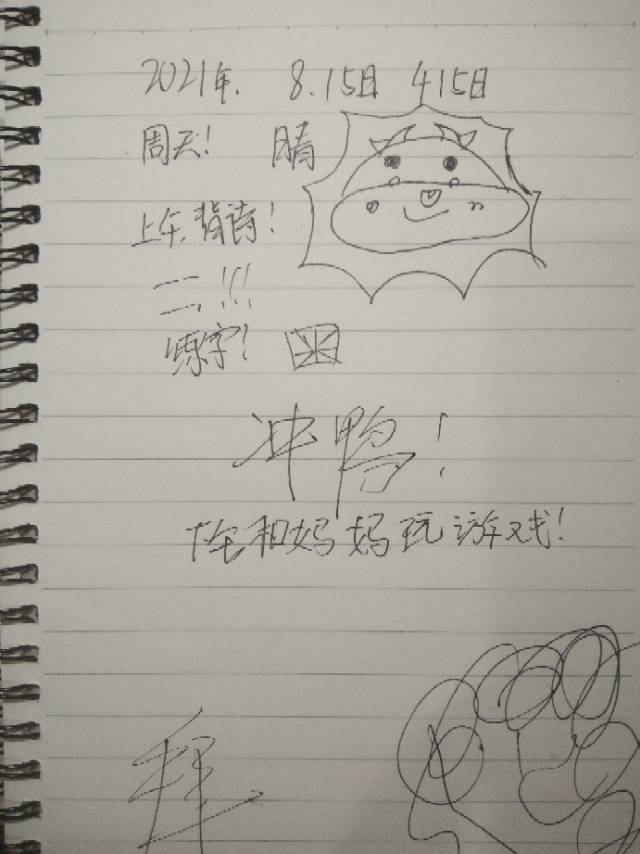 2021年. 8.15日 415日
周天! 晴
上午,背诗!
二,!!!
练字!
冲鸭!
下午和妈妈玩游戏!
拜